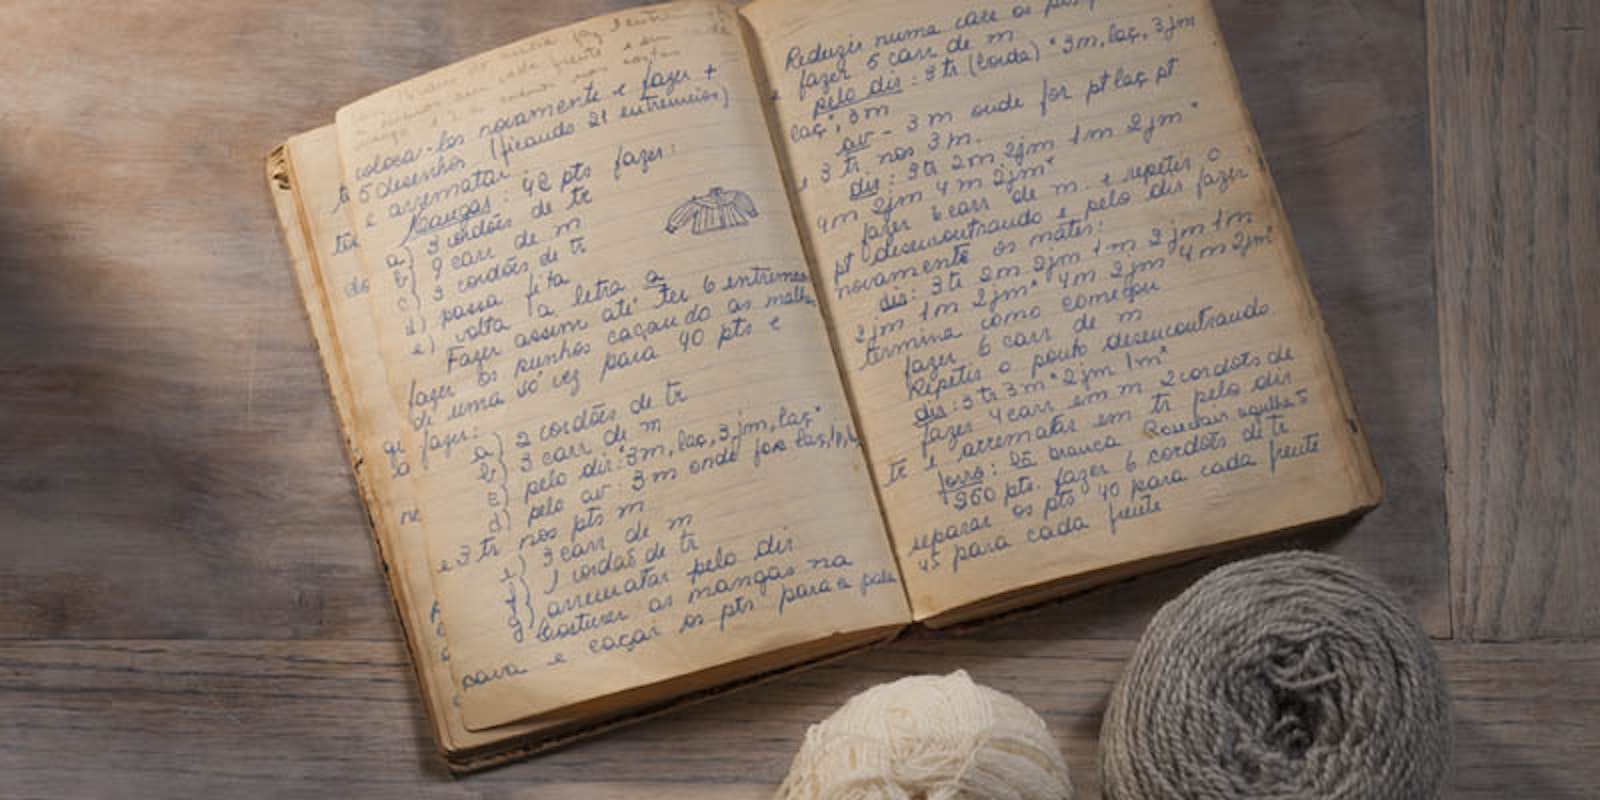 coloca-los novamente e fazer +
5 desenhos (ficando 21 entremeios)
e arrematar
Mangas: 42 pts fazer:
a) 3 cordões de tr
b) 9 carr de m
c) 3 cordões de tr
d) passa fita
e) volta a letra a
Fazer assim até ter 6 entremeios
fazer os punhos caçando as malhas
de uma só vez para 40 pts e
fazer:
a) 2 cordões de tr
b) 3 carr de m
c) pelo dir: 3m, laç, 3jm, laç*
d) pelo av: 3m onde for laç,
e 3 tr nos pts m
e) 3 carr de m
f) 1 cordão de tr
g) arrematar pelo dir
Costurar as mangas na
para e caçar os pts para a pala
Reduzir numa care os
fazer 6 carr de m
pelo dir: 3 tr (borda) *3m, laç, 3jm
laç*, 3m
av - 3m onde for pt laç pt
e 3 tr nos 3m.
dir: 3tr 2m 2jm 1m 2jm*
4m 2jm 4m 2jm*
fazer 6 carr de m. e repetir o
pt desencontrando e pelo dir fazer
novamente os mates:
dir: 3tr 2m 2jm 1m 2jm 1m
2jm 1m 2jm* 4m 2jm 4m 2jm*
termina como começou
fazer 6 carr de m
Repetir o ponto desencontrando
dir: 3tr 3m* 2jm 1m*
fazer 4 carr em m, 2 cordões de
tr e arrematar em tr pelo dir
forro: lã branca agulha 5
260 pts. fazer 6 cordões de tr
separar os pts 40 para cada frente
45 para cada frente